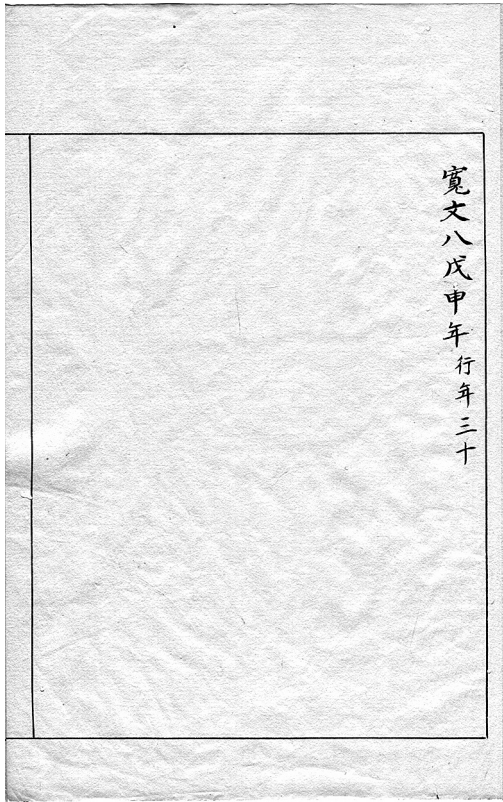 寛文八戊申年行年三十